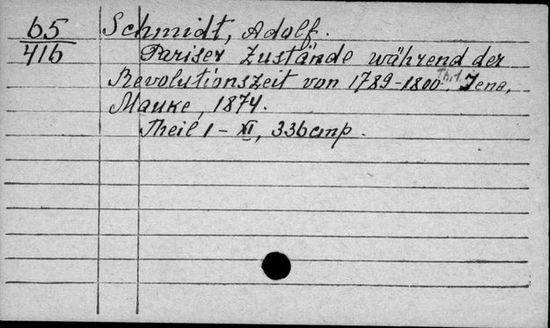 65 Schmidt, Adolf.
416 Pariser Zustände während der
Revolutionszeit von 1789-1800. Th.1. Jena,
Mauke, 1874.
Theil I - XI, 336 cmp.